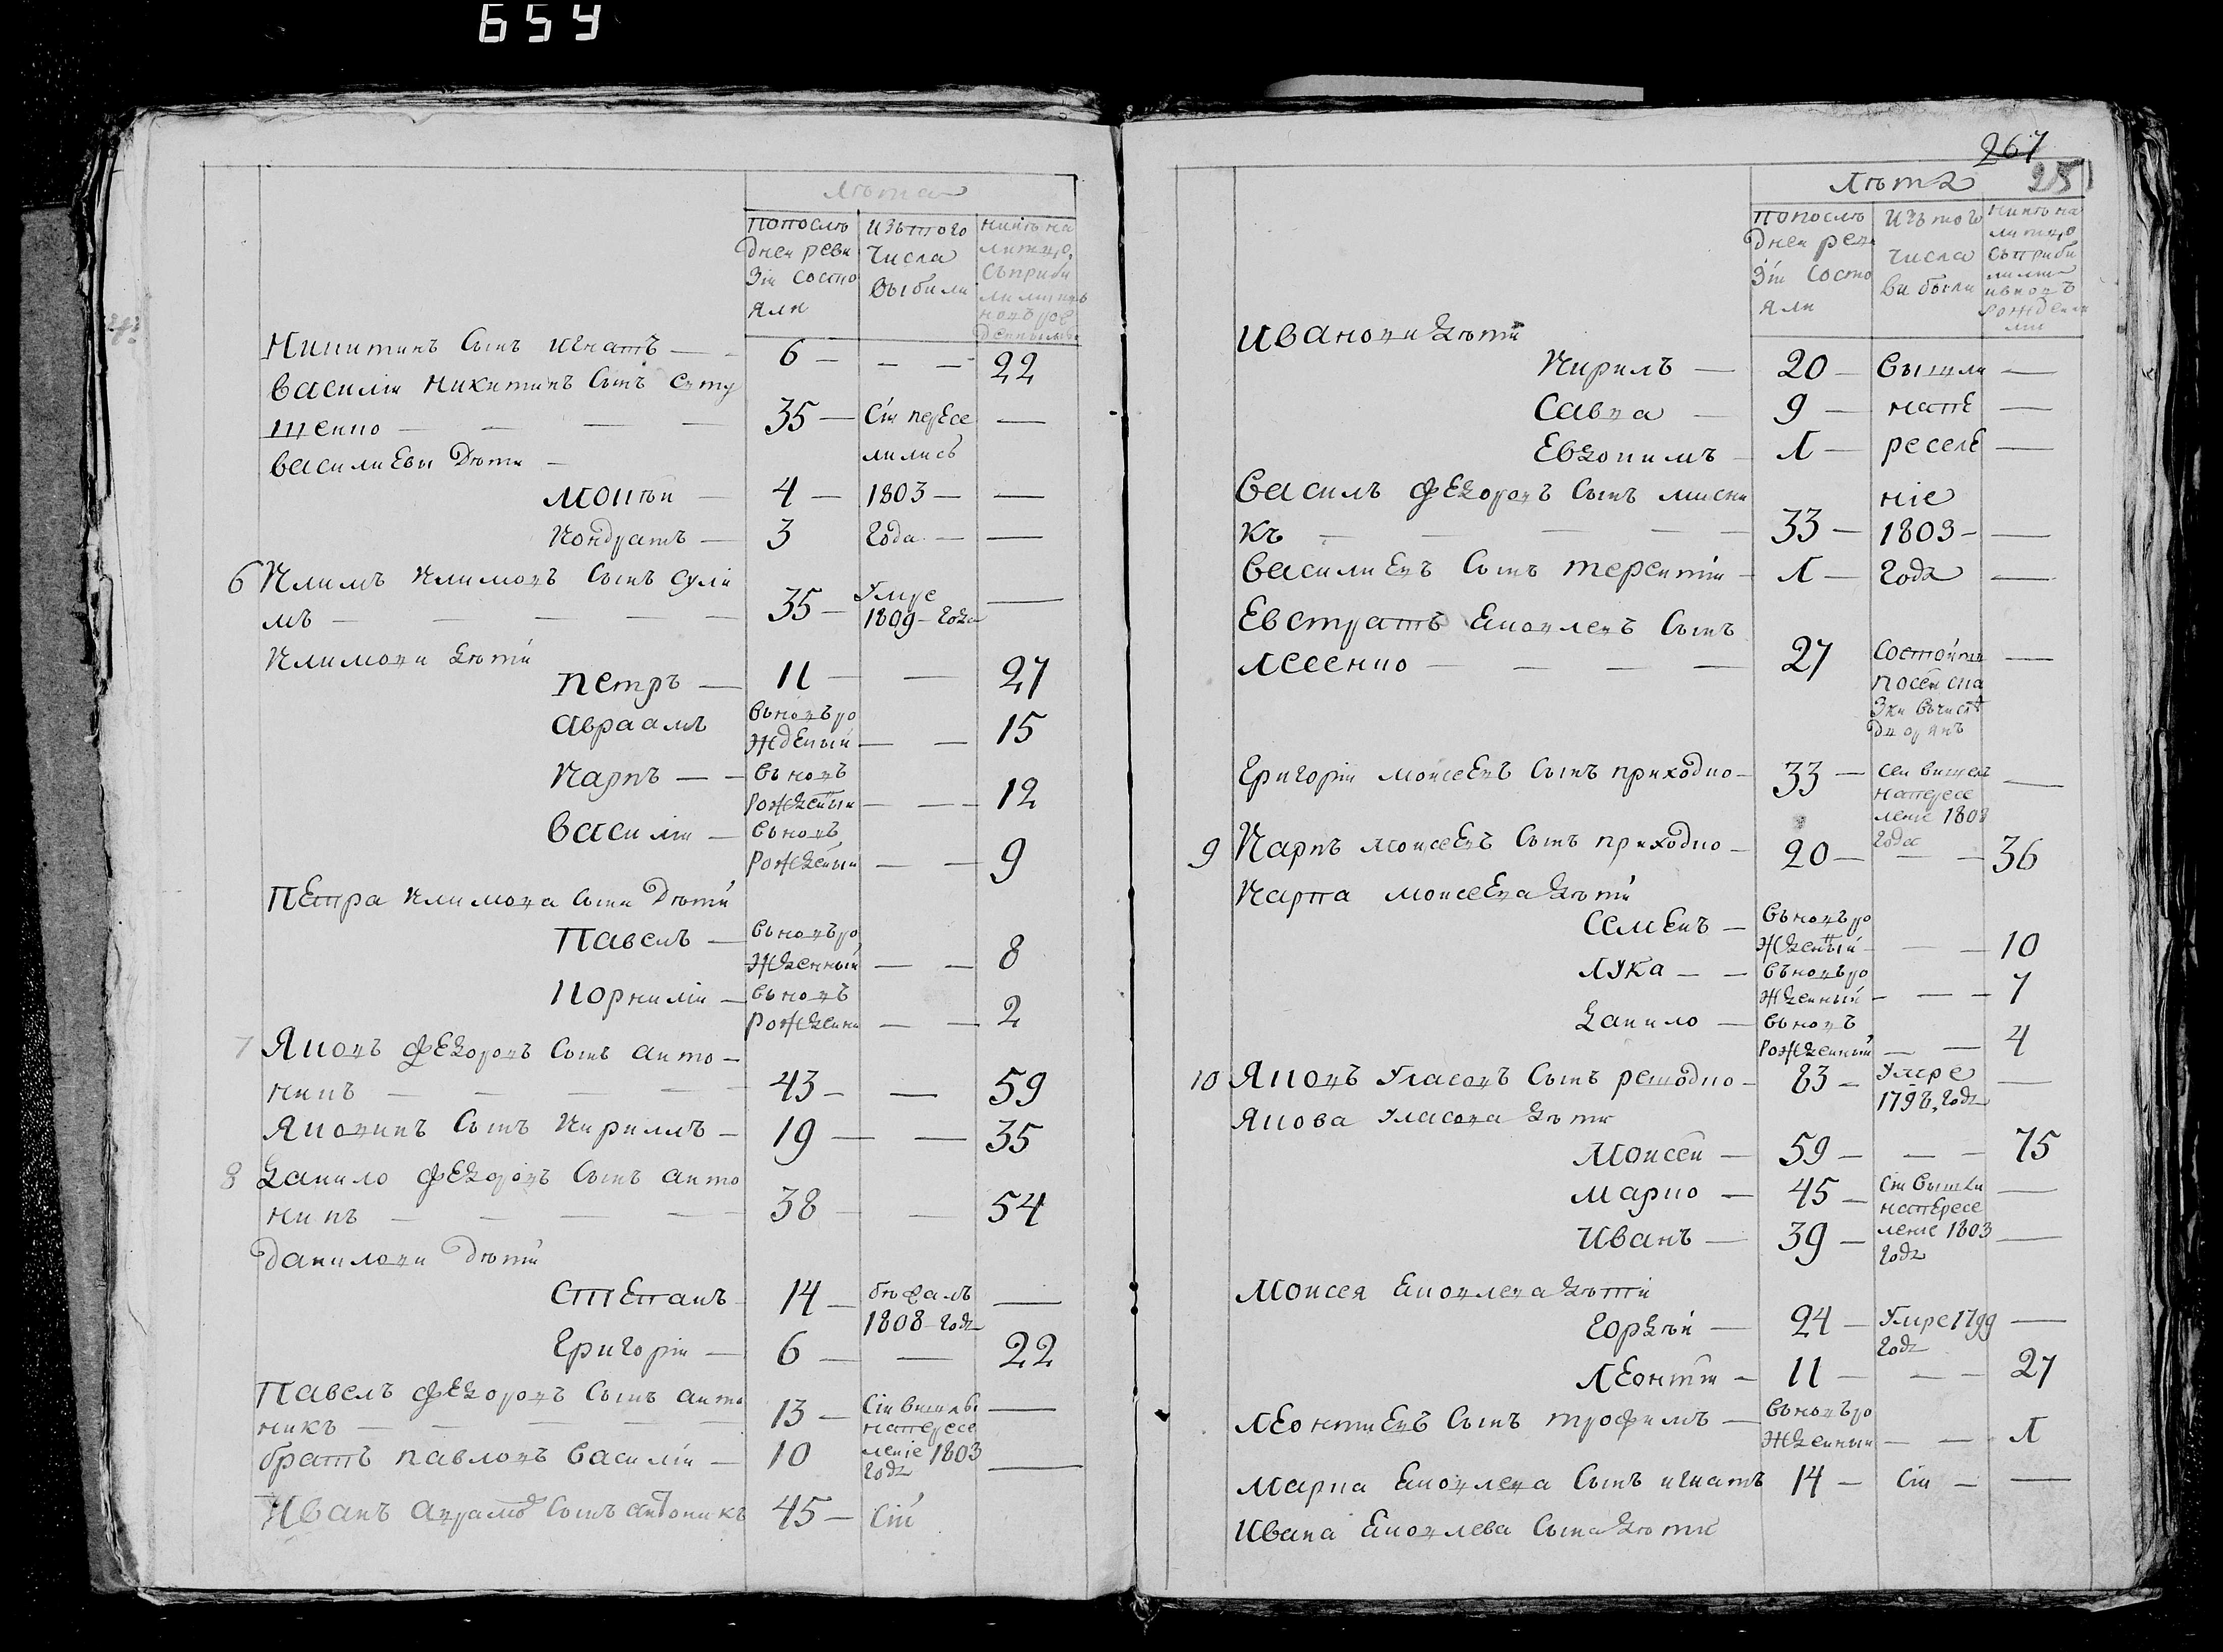 659
Лѣта
попослѣ
дней реви
зіи состо
яли
изътого
числа
выбыли
нинѣ на
лицо,
съприби
лими и
новъ рож
денными
Никитинъ Сынъ Игнатъ — 6 — — — 22
Василій Никитинъ Сынъ
35 — Сіи пересе —
лились
Василиевы Дѣти —
Моисѣй — 4 — 1803 — —
Кондратъ — 3 Года — —
6 Климъ Климовъ Сынъ Сулі
мъ — 35 — Умре 1809 — Года —
Климови дѣти
Петръ — 11 — — 27
Авраамъ вьновъ ро
жденый — — 15
Карпъ — — вьновъ
рожденый — — 12
Василій — вьновъ
рожденый — — 9
Петра Климова Сына Дѣти
Павелъ — вьновъ ро
жденный — — 8
Корнилій — вьновъ
рождени — — 2
7 Яковъ Федоровъ Сынъ Анто —
никъ — 43 — — 59
Яковинъ Сынъ Кирилъ — 19 — — 35
8 Данило Федоровъ Сынъ Анто
никъ — 38 — — 54
Данилови Дѣти
Степанъ 14 — бѣжалъ —
1808 Года
Григорій — 6 — — 22
Павелъ Федоровъ Сынъ Анто
никъ — 13 — Сіи вишлы —
напересе
братъ Павловъ Василій — 10 леніе 1803 —
Года
Иванъ Аврамовъ Сынъ Антоникъ 45 — Сіи
267
25
Лѣта
попослѣ
дней реви
зіи состо
яли
изъ того
числа
вибыли
нинѣ на
лицо
съприби
лими
ивновъ
рожденни
ми
Иванови дѣти
Кирилъ — 20 — Вышли —
Савка — 9 — напе —
Евдокимъ — Л — реселе —
Василъ Федоровъ Сынъ Мисни ніе
къ — 33 — 1803 — —
Василиевъ Сынъ Терентій — Л — Года —
Евстратъ Яковлевъ Сынъ
27 Состоитъ —
посей ска
зки вчислѣ
дворянъ
Григорій Моисеевъ Сынъ Приходко — 33 — Сей вишелъ —
напересе
леніе 1803
Года
9 Карпъ Моисеевъ Сынъ Приходко — 20 — — — 36
Карпа Моисеева дѣти
Семенъ — вьновъ ро
жденый — — — 10
Лука — — вьновъ ро
жденный — — — 7
Данило — вьновъ
рожденный — — 4
10 Яковъ Уласовъ Сынъ — 83 — Умре —
1798, Года
Якова Уласова дѣти
Моисей — 59 — — — 75
Марко — 45 — Сіи вышли —
напересе
Иванъ — 39 — леніе 1803 —
Года
Моисея Яковлева дѣти
Гордѣй — 24 — Умре 1799 —
Года
Леонтій — 11 — — — 27
Леонтиевъ Сынъ Трофимъ — вьновъ ро
жденный — — Л
Марка Яковлева Сынъ Игнатъ 14 — Сіи — —
Ивана Яковлева Сына дѣти